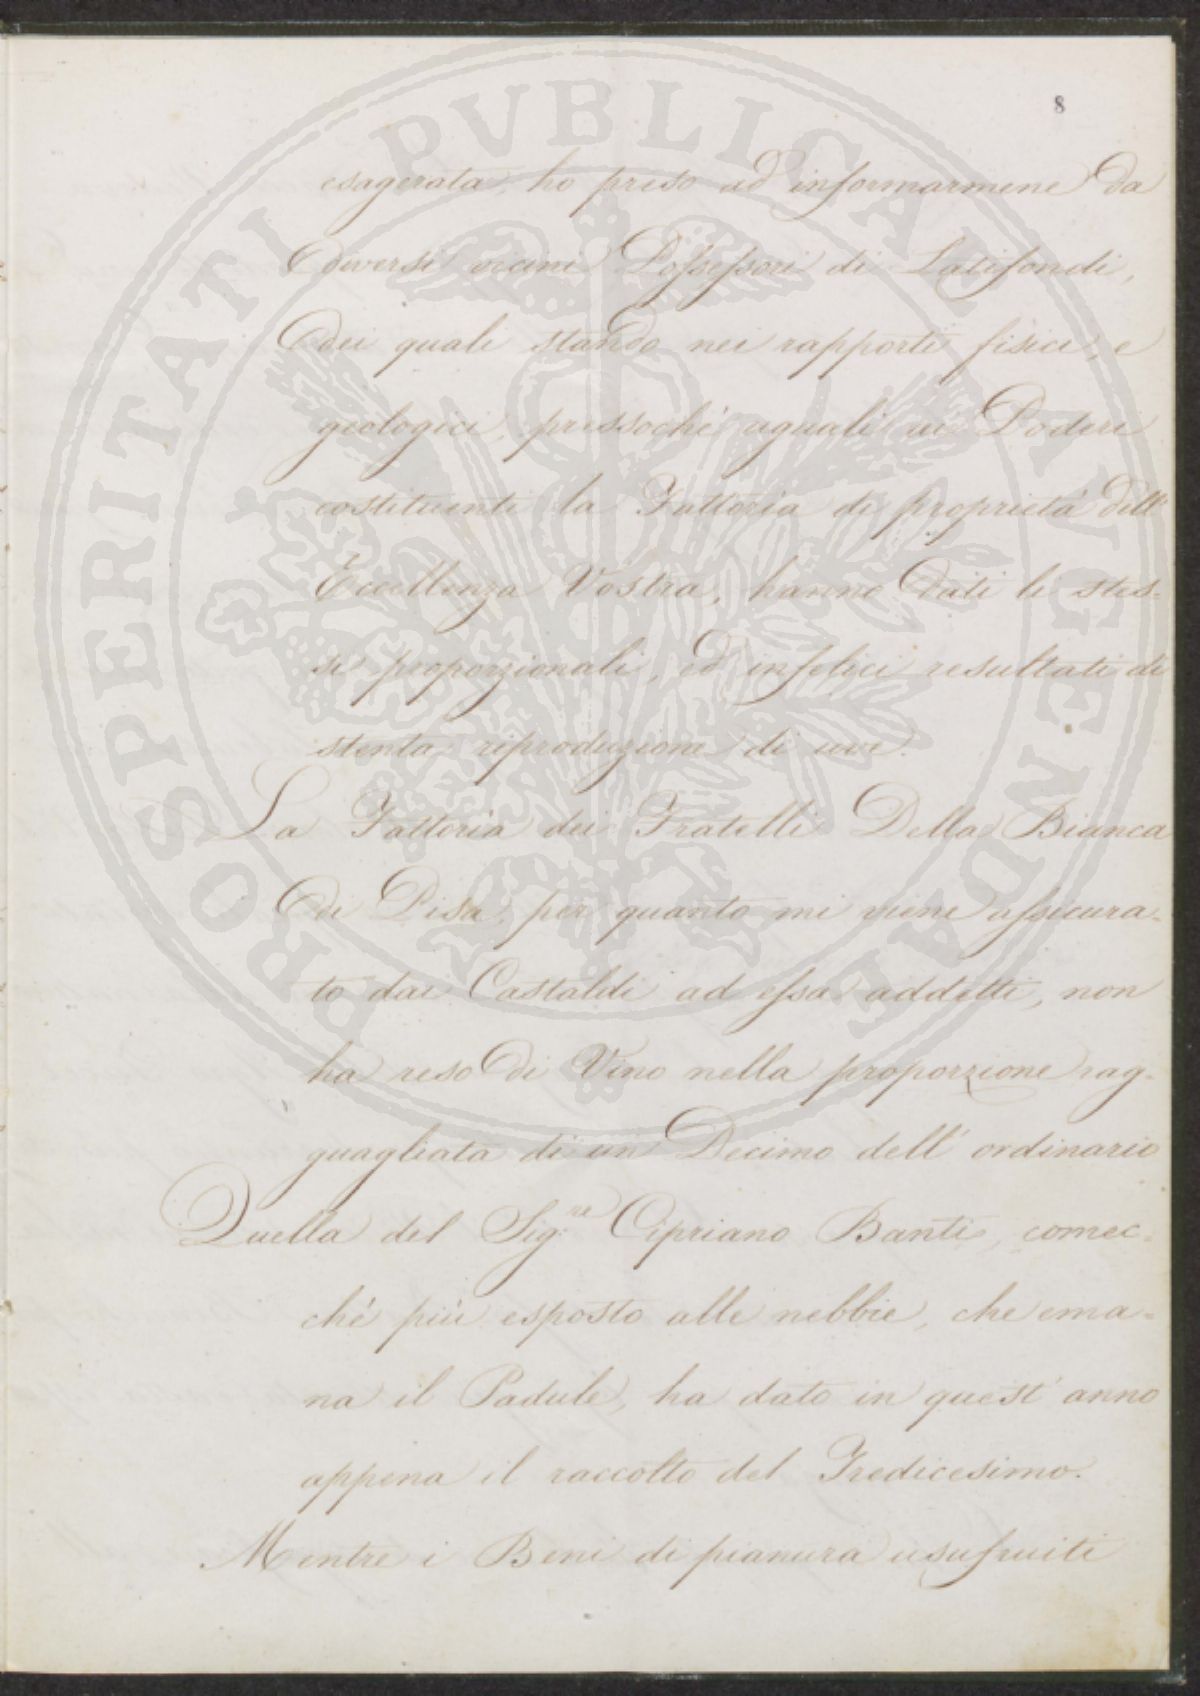 8
esagerata, ho preso ad informarmene da
diversi vicini Possessori di Latifondi,
dei quali stando nei rapporti fisici, e
geologici, pressochè uguali ai Poderi
costituenti la Fattoria di proprietà dell'
Eccellenza Vostra, hanno dati li stes-
si proporzionali, ed infelici resultati di
stenta riproduzione di uve.
La Fattoria dei Fratelli Della Bianca
di Pisa, per quanto mi viene assicura-
to dai Castaldi ad essa addetti, non
ha reso di Vino nella proporzione rag-
guagliata di un Decimo dell' ordinario
Quella del Sig.re Cipriano Banti, comec-
chè più esposto alle nebbie, che ema-
na il Padule, ha dato in quest' anno
appena il raccolto del Tredicesimo.
Mentre i Beni di pianura usufruiti
PROSPERITATI PVBLICAE AVGENDAE